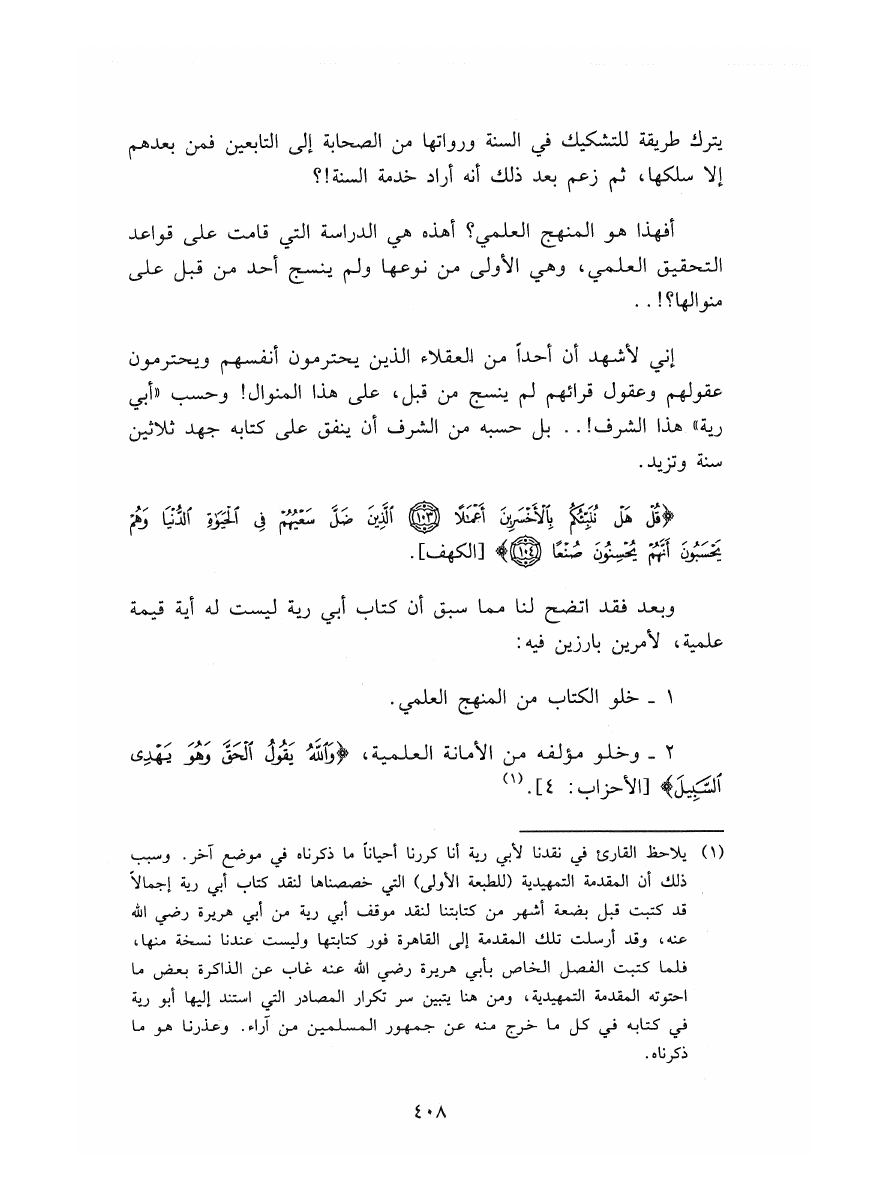 يترك طريقة للتشكيك في السنة ورواتها من الصحابة إلى التابعين فمن بعدهم
إلا سلكها، ثم زعم بعد ذلك أنه أراد خدمة السنة!؟
أفهذا هو المنهج العلمي؟ أهذه هي الدراسة التي قامت على قواعد
التحقيق العلمي، وهي الأولى من نوعها ولم ينسج أحد من قبل على
منوالها؟!..
إني لأشهد أن أحداً من العقلاء الذين يحترمون أنفسهم ويحترمون
عقولهم وعقول قرائهم لم ينسج من قبل، على هذا المنوال! وحسب «أبي
رية» هذا الشرف!.. بل حسبه من الشرف أن ينفق على كتابه جهد ثلاثين
سنة وتزيد.
﴿قُلْ هَلْ نُنَبِّئُكُم بِٱلْأَخْسَرِينَ أَعْمَٰلًا ﴿١٠٣﴾ ٱلَّذِينَ ضَلَّ سَعْيُهُمْ فِي ٱلْحَيَوٰةِ ٱلدُّنْيَا وَهُمْ
يَحْسَبُونَ أَنَّهُمْ يُحْسِنُونَ صُنْعًا ﴿١٠٤﴾﴾ [الكهف].
وبعد فقد اتضح لنا مما سبق أن كتاب أبي رية ليست له أية قيمة
علمية، لأمرين بارزين فيه:
١ ـ خلو الكتاب من المنهج العلمي.
٢ ـ وخلو مؤلفه من الأمانة العلمية، ﴿وَٱللَّهُ يَقُولُ ٱلْحَقَّ وَهُوَ يَهْدِى
ٱلسَّبِيلَ﴾ [الأحزاب: ٤].(١)
(١) يلاحظ القارئ في نقدنا لأبي رية أنا كررنا أحياناً ما ذكرناه في موضع آخر. وسبب
ذلك أن المقدمة التمهيدية (للطبعة الأولى) التي خصصناها لنقد كتاب أبي رية إجمالاً
قد كتبت قبل بضعة أشهر من كتابتنا لنقد موقف أبي رية من أبي هريرة رضي الله
عنه، وقد أرسلت تلك المقدمة إلى القاهرة فور كتابتها وليست عندنا نسخة منها،
فلما كتبت الفصل الخاص بأبي هريرة رضي الله عنه غاب عن الذاكرة بعض ما
احتوته المقدمة التمهيدية، ومن هنا يتبين سر تكرار المصادر التي استند إليها أبو رية
في كتابه في كل ما خرج منه عن جمهور المسلمين من آراء. وعذرنا هو ما
ذكرناه.
٤٠٨